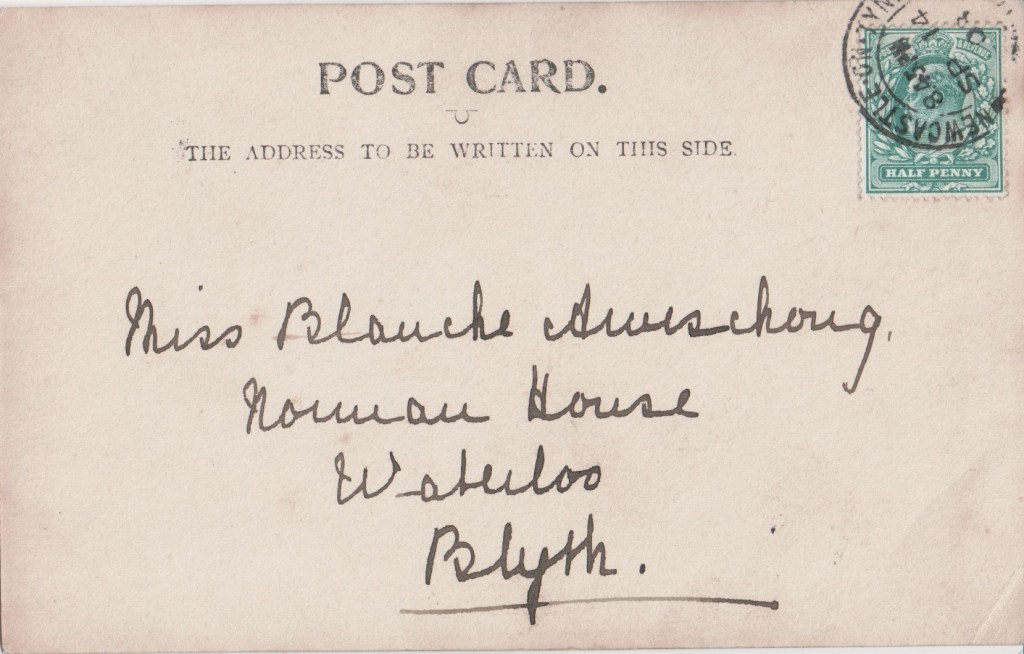 POST CARD.
THE ADDRESS TO BE WRITTEN ON THIS SIDE.
NEWCASTLE-ON-TYNE
8 45 PM
SP 14
HALF PENNY
Miss Blanche
Norman House
Waterloo
Blyth.